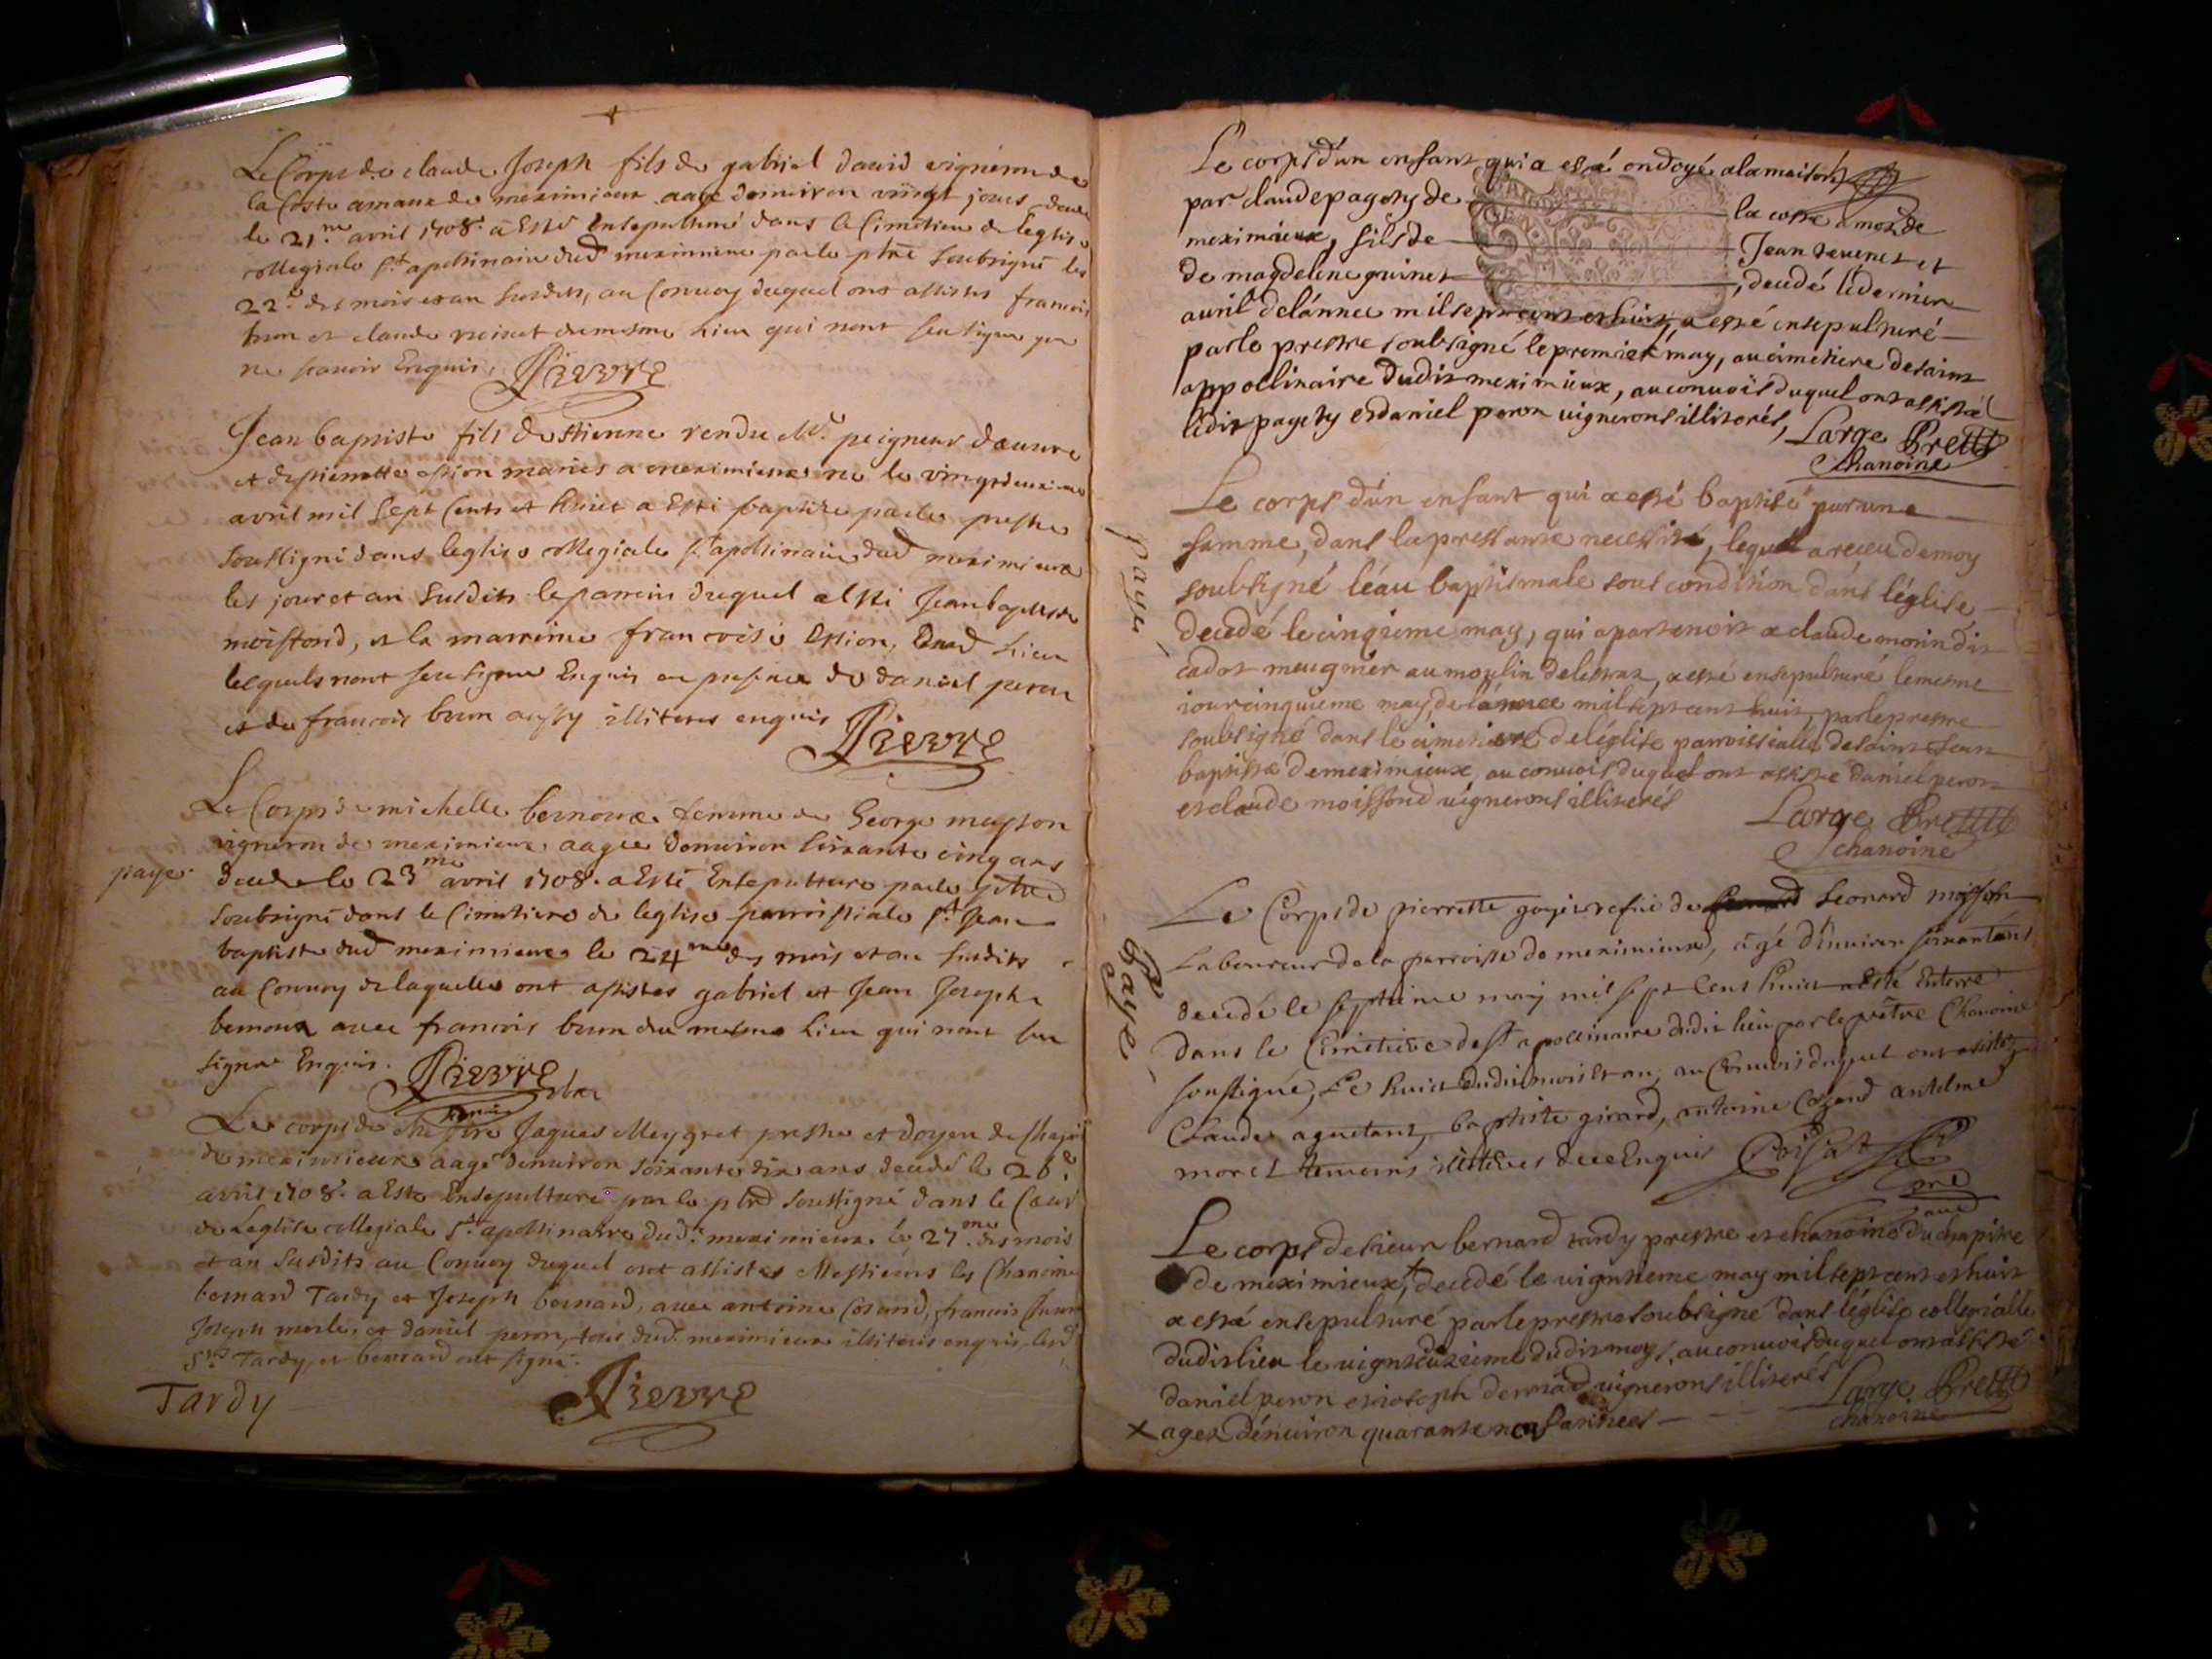 Le Corps de claude Joseph fils de gabriel david vigneron de
la Coste amaux de meximieux aagé denviron vingt jours decedé
le 21.me avril 1708. a Esté Ensepulturé dans le Cimetiere de leglise
collegiale St apollinaire dud meximieux par le ptre soubsigné le
22e des mois et an susdits, au Convoy duquel ont assistés francois
brun et claude dumesme Lieu qui nont sceu signer pour
ne scavoir Enquis. Pierre
Jean baptiste fils de stienne rendu Md peigneur dœuvre
et de pierrette assion mariés a meximieux né le vingtdeuxieme
avril mil sept Cents et huict a Esté baptizé par le prestre
soussigné dans leglise collegiale St apollinaire dud meximieux
les jour et an susdits le parrein duquel a esté Jean baptiste
moissond, et la marreine francoise assion, dud Lieu
lesquels nont sceu signer Enquis en presence de daniel peron
et de francois brun aussy illiteres enquis Pierre
Le Corps de michelle bernoux femme de George
vigneron de meximieux aagée denviron soixante cinq ans
paye.
decedee le 23me avril 1708. a Esté Ensepulturé par le ptre
soubsigné dans le Cimetiere de leglise parroissiale St Jean
baptiste dud meximieux le 24me des mois et an susdits
au Convoy de laquelle ont assistés gabriel et Jean Joseph
bernoux avec francois brun du mesme Lieu qui nont sceu
signer Enquis. Pierre
Le corps de messire Jaques Meygret prestre et doyen du
de meximieux aagé denviron soixante dix ans decedé le 26e
avril 1708. a Esté Ensepulturé par le ptre soussigné dans le Cœur
de Leglise collegiale St apollinaire dud. meximieux le 27me des mois
et an susdits au Convoy duquel ont assistés Messieurs les Chanoines
bernard Tardy et Joseph bernard, avec antoine Cosand, francois
Joseph merle, et daniel peron, tous dud. meximieux illiteres enquis, lesd
Srs Tardy et bernard ont signé.
Tardy Pierre
Le corps d'un enfant qui a esté ondoyé a la maison
par claude pagety de la coste a mos de
meximieux, fils de Jean tevenet et
de magdelene guinet, decedé le dernier
avril de l'année mil sept cent et huit, a esté ensepulturé
par le prestre soubsigné le premier may, au cimetiere de saint
appollinaire dudit meximieux, au convois duquel ont assisté
ledit pagety et daniel peron vignerons illiterés, Large Prestre
chanoine
Le corps d'un enfant qui a esté baptisé par une
famme, dans la pressante necessité, lequel a receu de moy
paye
soubsigné l'eau baptismale sous condition dans l'église
decedé le cinqieme may, qui apartenoit a claude morin dit
cadot meugnier au moulin de , a esté ensepulturé le mesme
iour cinquieme may, de l'année mil sept cent huit, par le prestre
soubsigné dans le cimetiere de l'église parroissialle de saint Jean
baptiste de meximieux, au convois duquel ont assisté daniel peron
et claude moissond vignerons illiterés
Large Prestre
chanoine
Le Corps de pierrette de Leonard moisson
Laboureur de la parroisse de meximieux, agé d'environ soixante ans
paye
decedé le septieme may mil sept Cent huict a esté Enterré
dans le Cimetiere de St apollinaire dudit lieu par le prêtre Chanoine
soussigné, Le huict dudit mois et an, au Convois duquel ont assistés
Claude aguetant, baptiste girard, antoine Cozand antelme
moret temoins illiteres de ce Enquis
pre
Le corps de sieur bernard tardy prestre et chanoine du chapitre
de meximieux, decedé le vigntieme may mil sept cent et huit
a esté ensepulturé par le prestre soubsigné dans l'église collegialle
dudit lieu le vignt dudit moys, au convois duquel ont assisté
daniel peron et ioseph vignerons illiterés Large Prestre
chanoine
x agez d'environ quarante ans